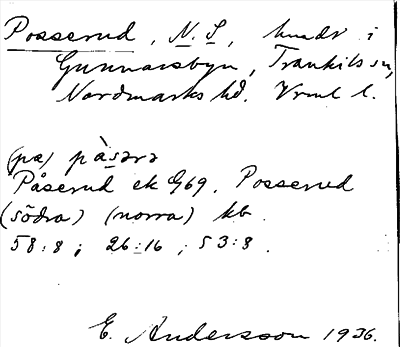 Posserud, N. S, hmdr i
Gunnarsbyn, Trankils sn,
Nordmarks hd. Vrml l.
(pɑ) pàsərə
Påserud ek G69. Posserud
(södra) (norra) kb.
58:8; 26:16; 53:8.
E. Andersson 1936.